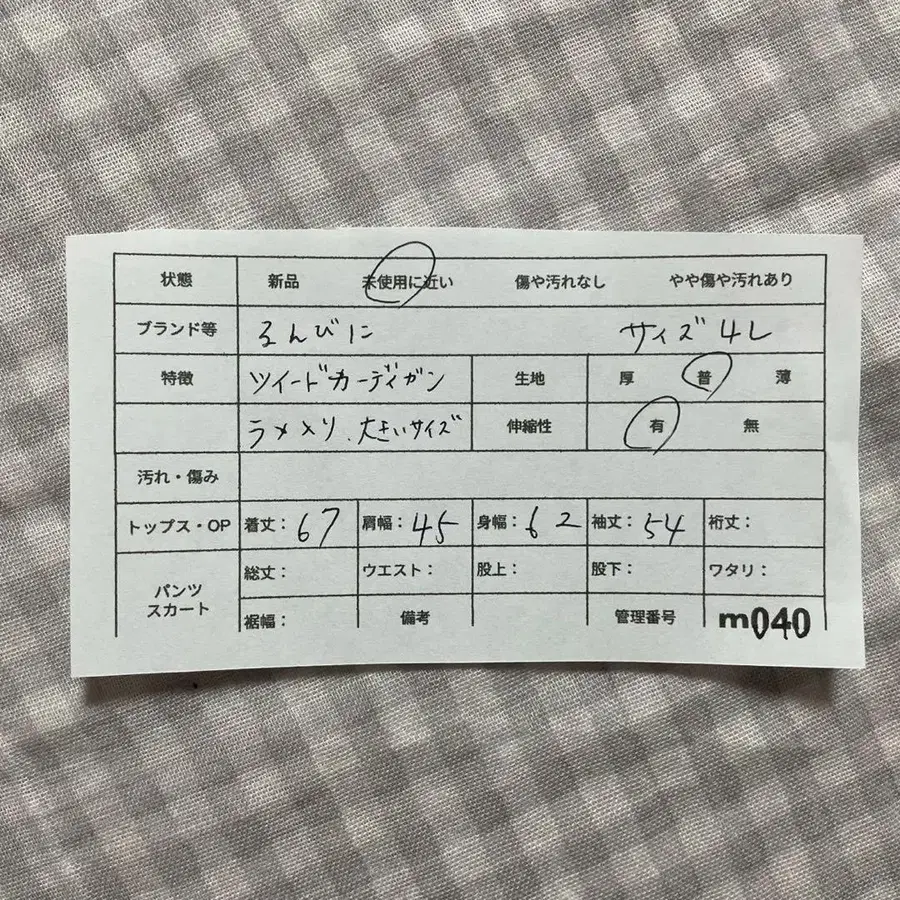 状態 新品 未使用に近い 傷や汚れなし やや傷や汚れあり
ブランド等 るんびに サイズ 4L
特徴 ツイードカーディガン 生地 厚 普 薄
ラメ入り、大きいサイズ 伸縮性 有 無
汚れ・傷み
トップス・OP 着丈: 67 肩幅: 45 身幅: 62 袖丈: 54 裄丈:
パンツ スカート 総丈: ウエスト: 股上: 股下: ワタリ:
裾幅: 備考 管理番号 m040